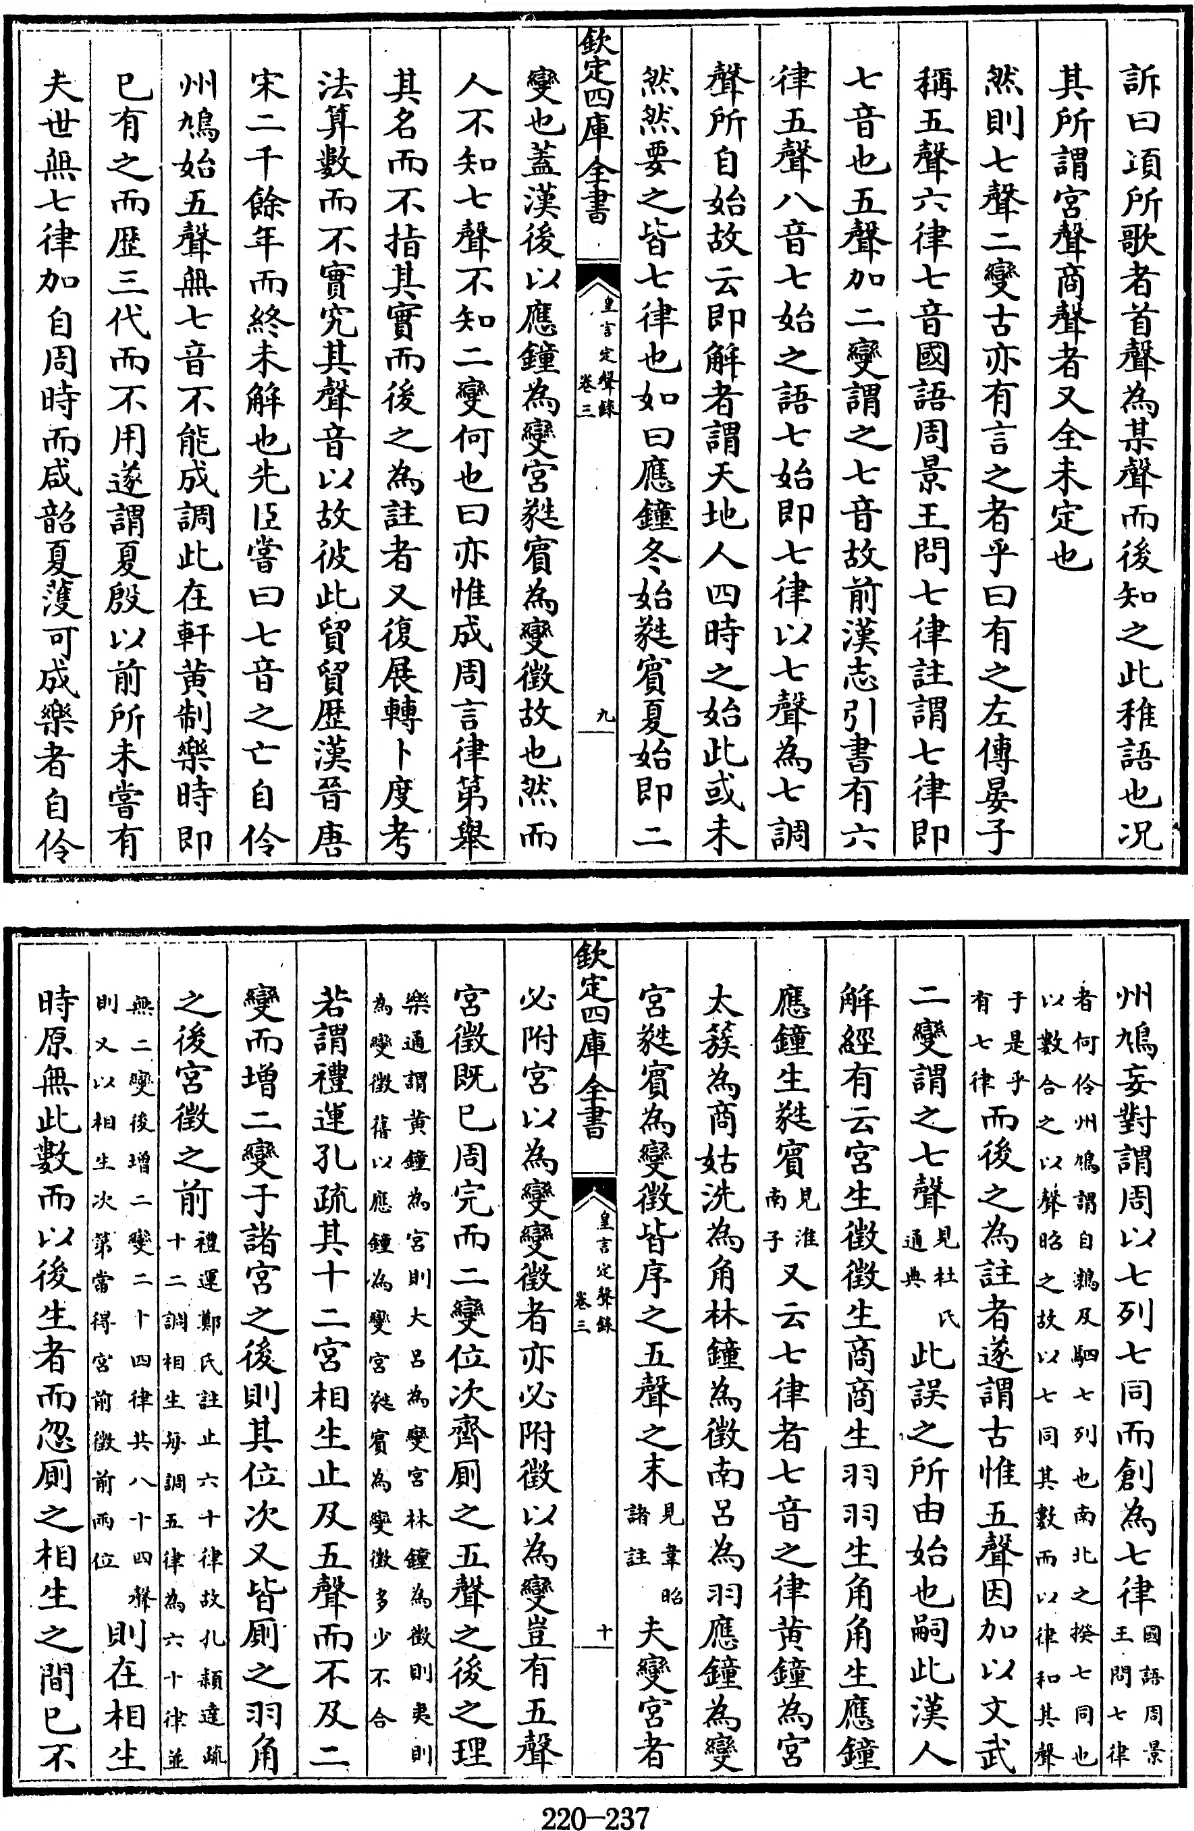 訴曰項所歌者首聲為某聲而後知之此稚語也况
其所謂宮聲商聲者又全未定也
然則七聲二變古亦有言之者乎曰有之左傳晏子
稱五聲六律七音國語周景王問七律註謂七律即
七音也五聲加二變謂之七音故前漢志引書有六
律五聲八音七始之語七始即七律以七聲為七調
聲所自始故云即解者謂天地人四時之始此或未
然然要之皆七律也如曰應鐘冬始蕤賓夏始即二
欽定四庫全書
皇言定聲錄
卷三
九
變也蓋漢後以應鐘為變宮蕤賓為變徵故也然而
人不知七聲不知二變何也曰亦惟成周言律第舉
其名而不指其實而後之為註者又復展轉卜度考
法算數而不實究其聲音以故彼此貿貿歴漢晉唐
宋二千餘年而終未解也先臣嘗曰七音之亡自伶
州鳩始五聲無七音不能成調此在軒黄制樂時即
已有之而歴三代而不用遂謂夏殷以前所未嘗有
夫世無七律加自周時而咸韶夏濩可成樂者自伶
州鳩妄對謂周以七列七同而創為七律國語周景
王問七律
者何伶州鳩謂自鶉及駟七列也南北之揆七同也
以數合之以聲昭之故以七同其數而以律和其聲
于是乎
有七律而後之為註者遂謂古惟五聲因加以文武
二變謂之七聲見杜氏
通典此誤之所由始也嗣此漢人
解經有云宮生徵徵生商商生羽羽生角角生應鐘
應鐘生蕤賓見淮
南子又云七律者七音之律黄鐘為宮
太蔟為商姑洗為角林鐘為徵南呂為羽應鐘為變
宮蕤賓為變徵皆序之五聲之末見韋昭
諸註夫變宮者
欽定四庫全書
皇言定聲錄
卷三
十
必附宮以為變變徵者亦必附徵以為變豈有五聲
宮徵既已周完而二變位次齊厠之五聲之後之理
樂通謂黄鐘為宮則大呂為變宮林鐘為徵則夷則
為變徵舊以應鐘為變宮蕤賓為變徵多少不合
若謂禮運孔疏其十二宮相生止及五聲而不及二
變而增二變于諸宮之後則其位次又皆厠之羽角
之後宮徵之前禮運鄭氏註止六十律故孔穎達疏
十二調相生每調五律為六十律並
無二變後増二變二十四律共八十四聲
則又以相生次第當得宮前徵前兩位則在相生
時原無此數而以後生者而忽厠之相生之間已不
220-237